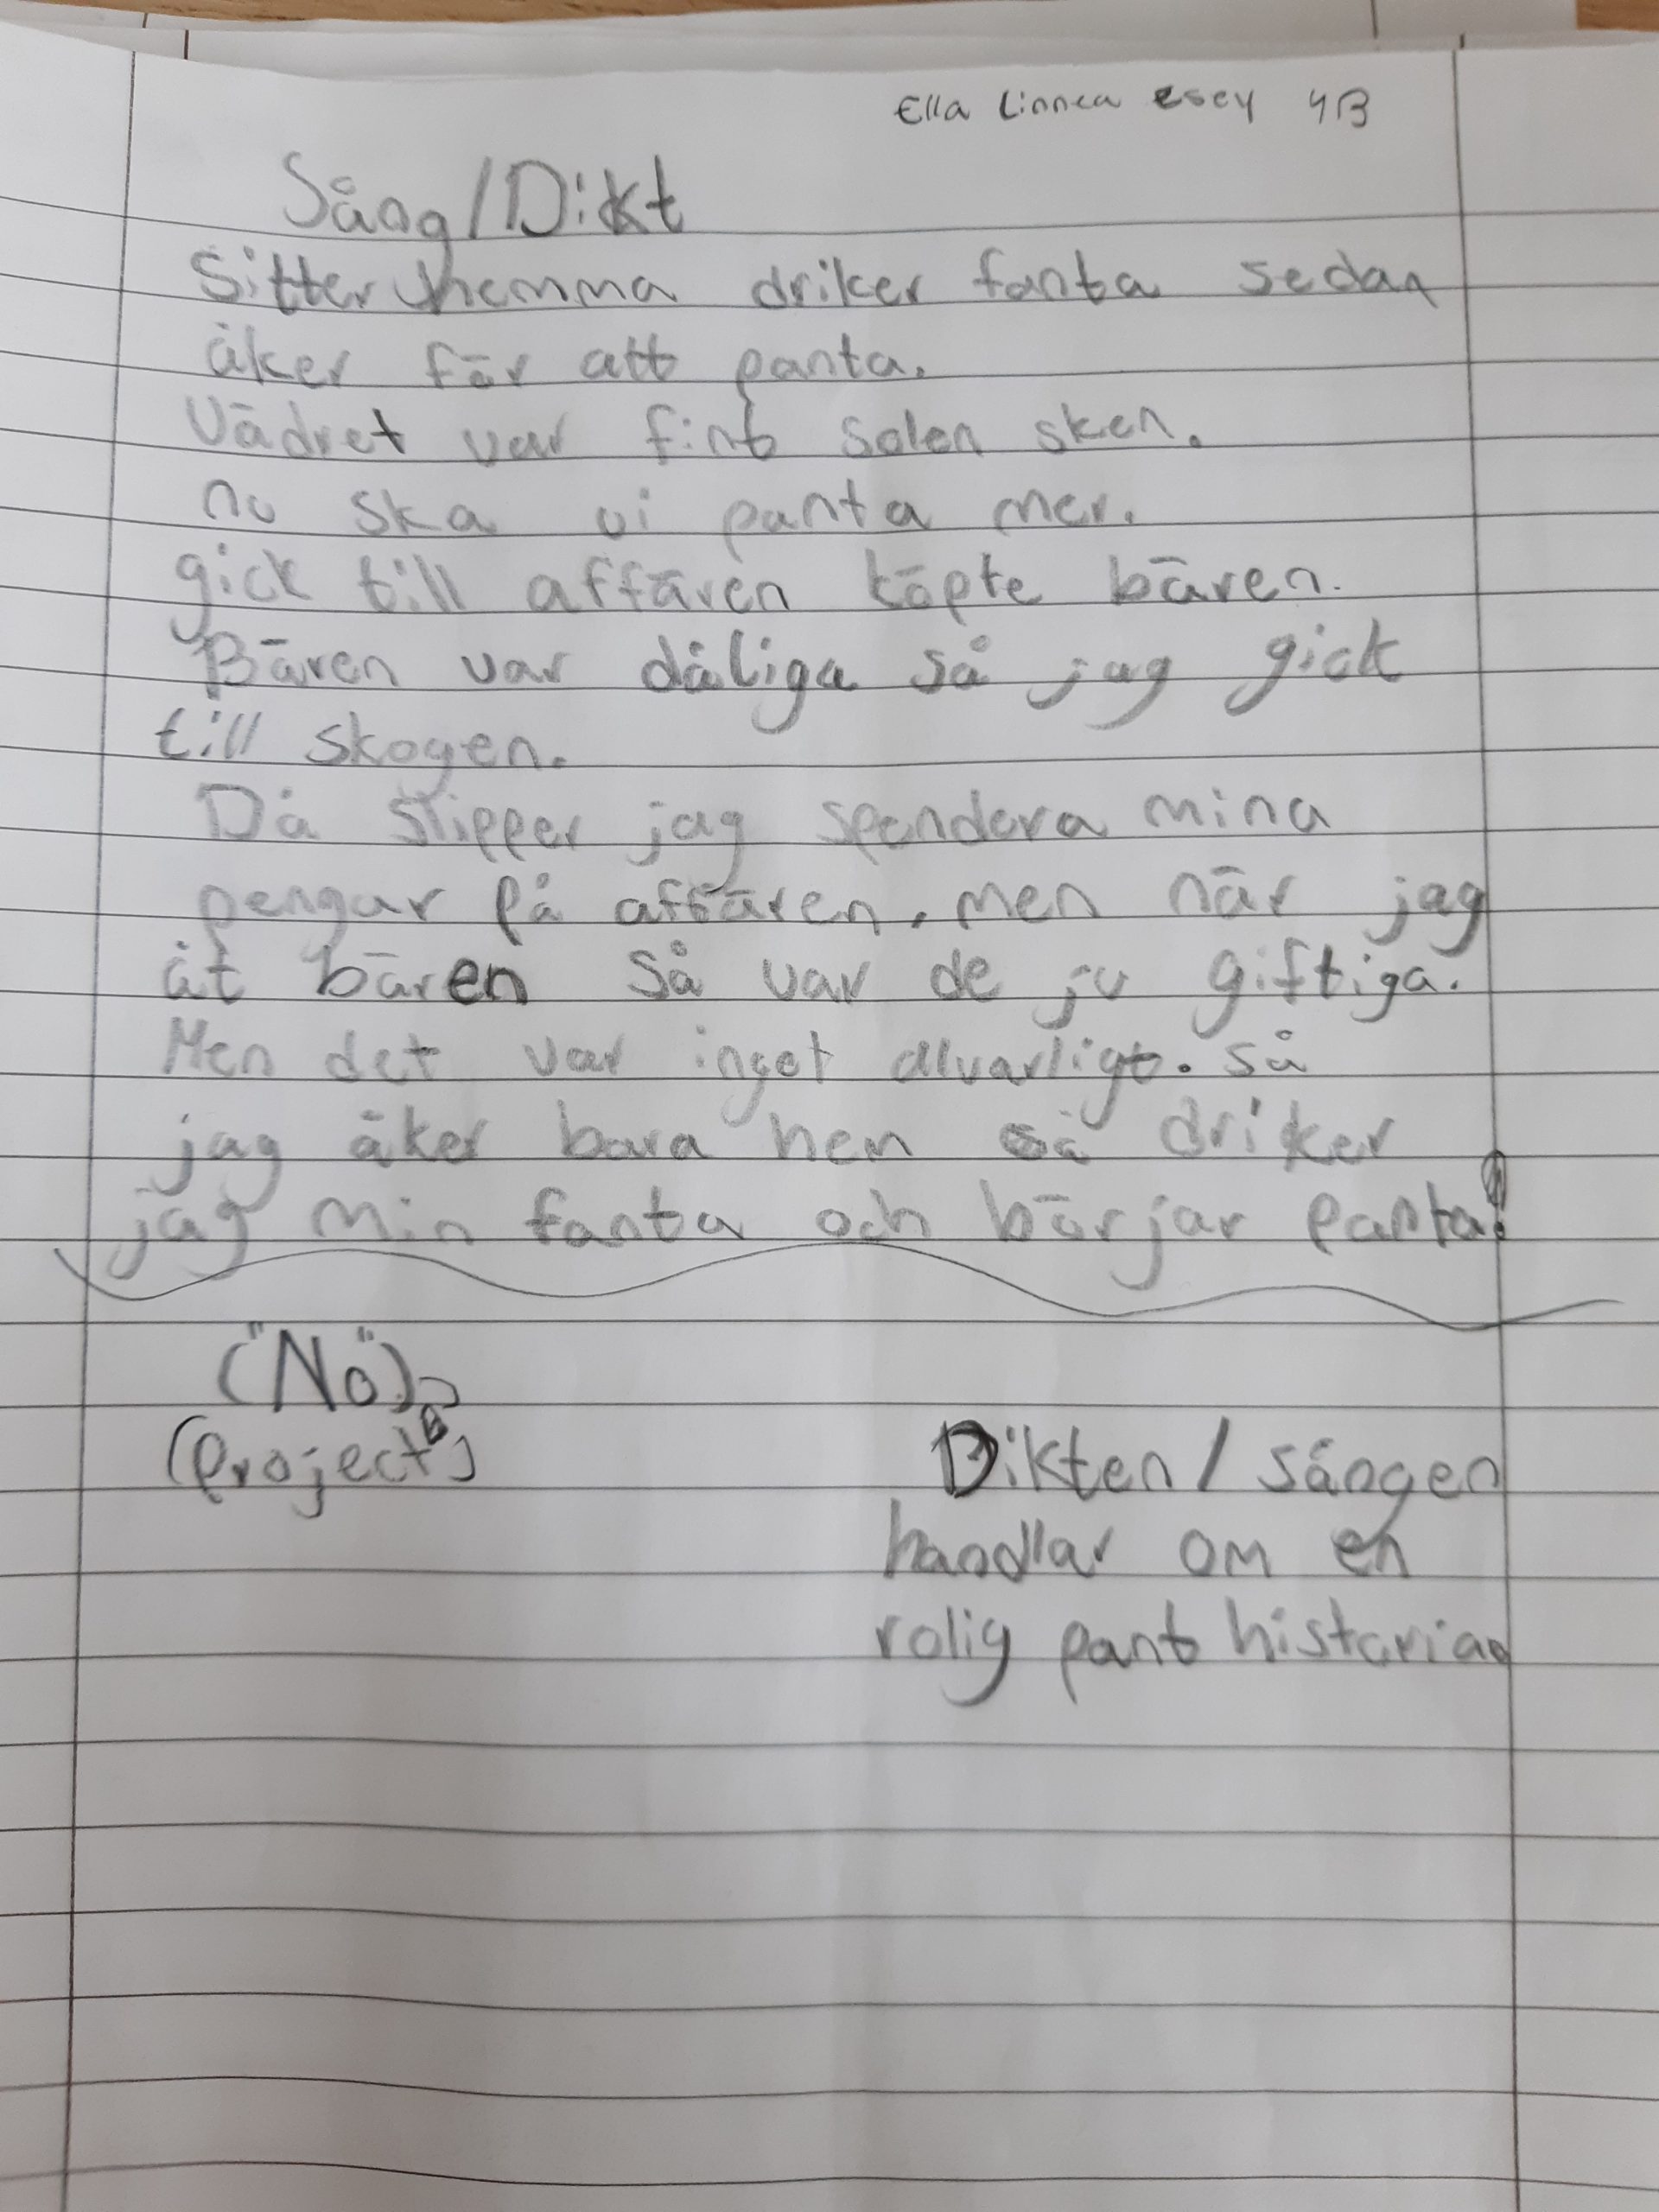 Ella Linnea esey 4B
Sång/Dikt
Sitter hemma driker fanta sedan
åker för att panta.
Vädret var fint solen sken.
nu ska vi panta mer.
gick till affären köpte bären.
Bären var dåliga så jag gick
till skogen.
Då slipper jag spendera mina
pengar på affären. men när jag
åt bären så var de ju giftiga.
Men det var inget alvarligt. så
jag åker bara hem så driker
jag min fanta och börjar panta!
("No")
(Project)
Dikten/sången
handlar om en
rolig pant historia